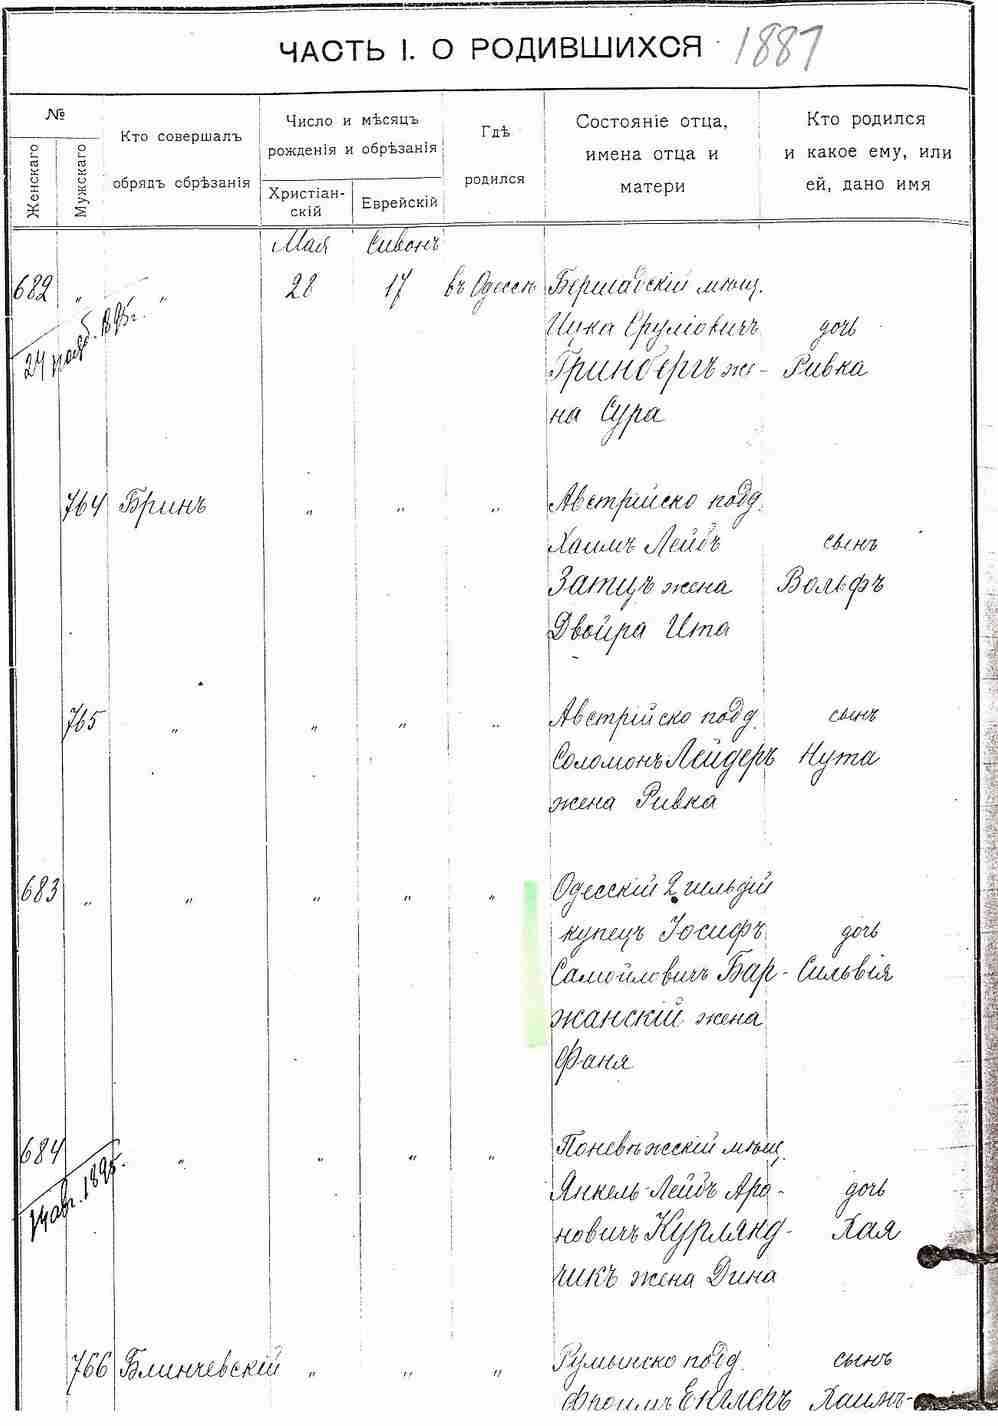 ЧАСТЬ I. О РОДИВШИХСЯ 1887
№
Женскаго
Мужскаго
Кто совершалъ
обрядъ обрѣзанія
Число и мѣсяцъ
рожденія и обрѣзанія
Христіан-
скій
Еврейскій
Гдѣ
родился
Состояніе отца,
имена отца и
матери
Кто родился
и какое ему, или
ей, дано имя
Мая Сивонъ
682 „ „ 28 17 въ Одессѣ Бершадскій мѣщ.
24 нояб. 1895г.
Ицка Сруліовичъ дочь
Гринбергъ же- Ривка
на Сура
764 Бринъ „ „ „ Австрійско подд.
Хаимъ Лейбъ сынъ
Затцъ жена Вольфъ
Двойра Ита
765 „ „ „ „ Австрійско подд. сынъ
Соломонъ Лейдеръ Нута
жена Ривка
683 „ „ „ „ „ Одесскій 2 гильдій
купецъ Іосифъ дочь
Самойловичъ Бар- Сильвія
жанскій жена
Фаня
684 „ „ „ „ Поневѣжскій мѣщ.
14 авг. 1895.
Янкель-Лейбъ Аро- дочь
новичъ Курлянд- Хая
чикъ жена Дина
766 Блинчевскій „ „ „ Румынско подд. сынъ
Фроимъ Енглеръ Хаимъ-